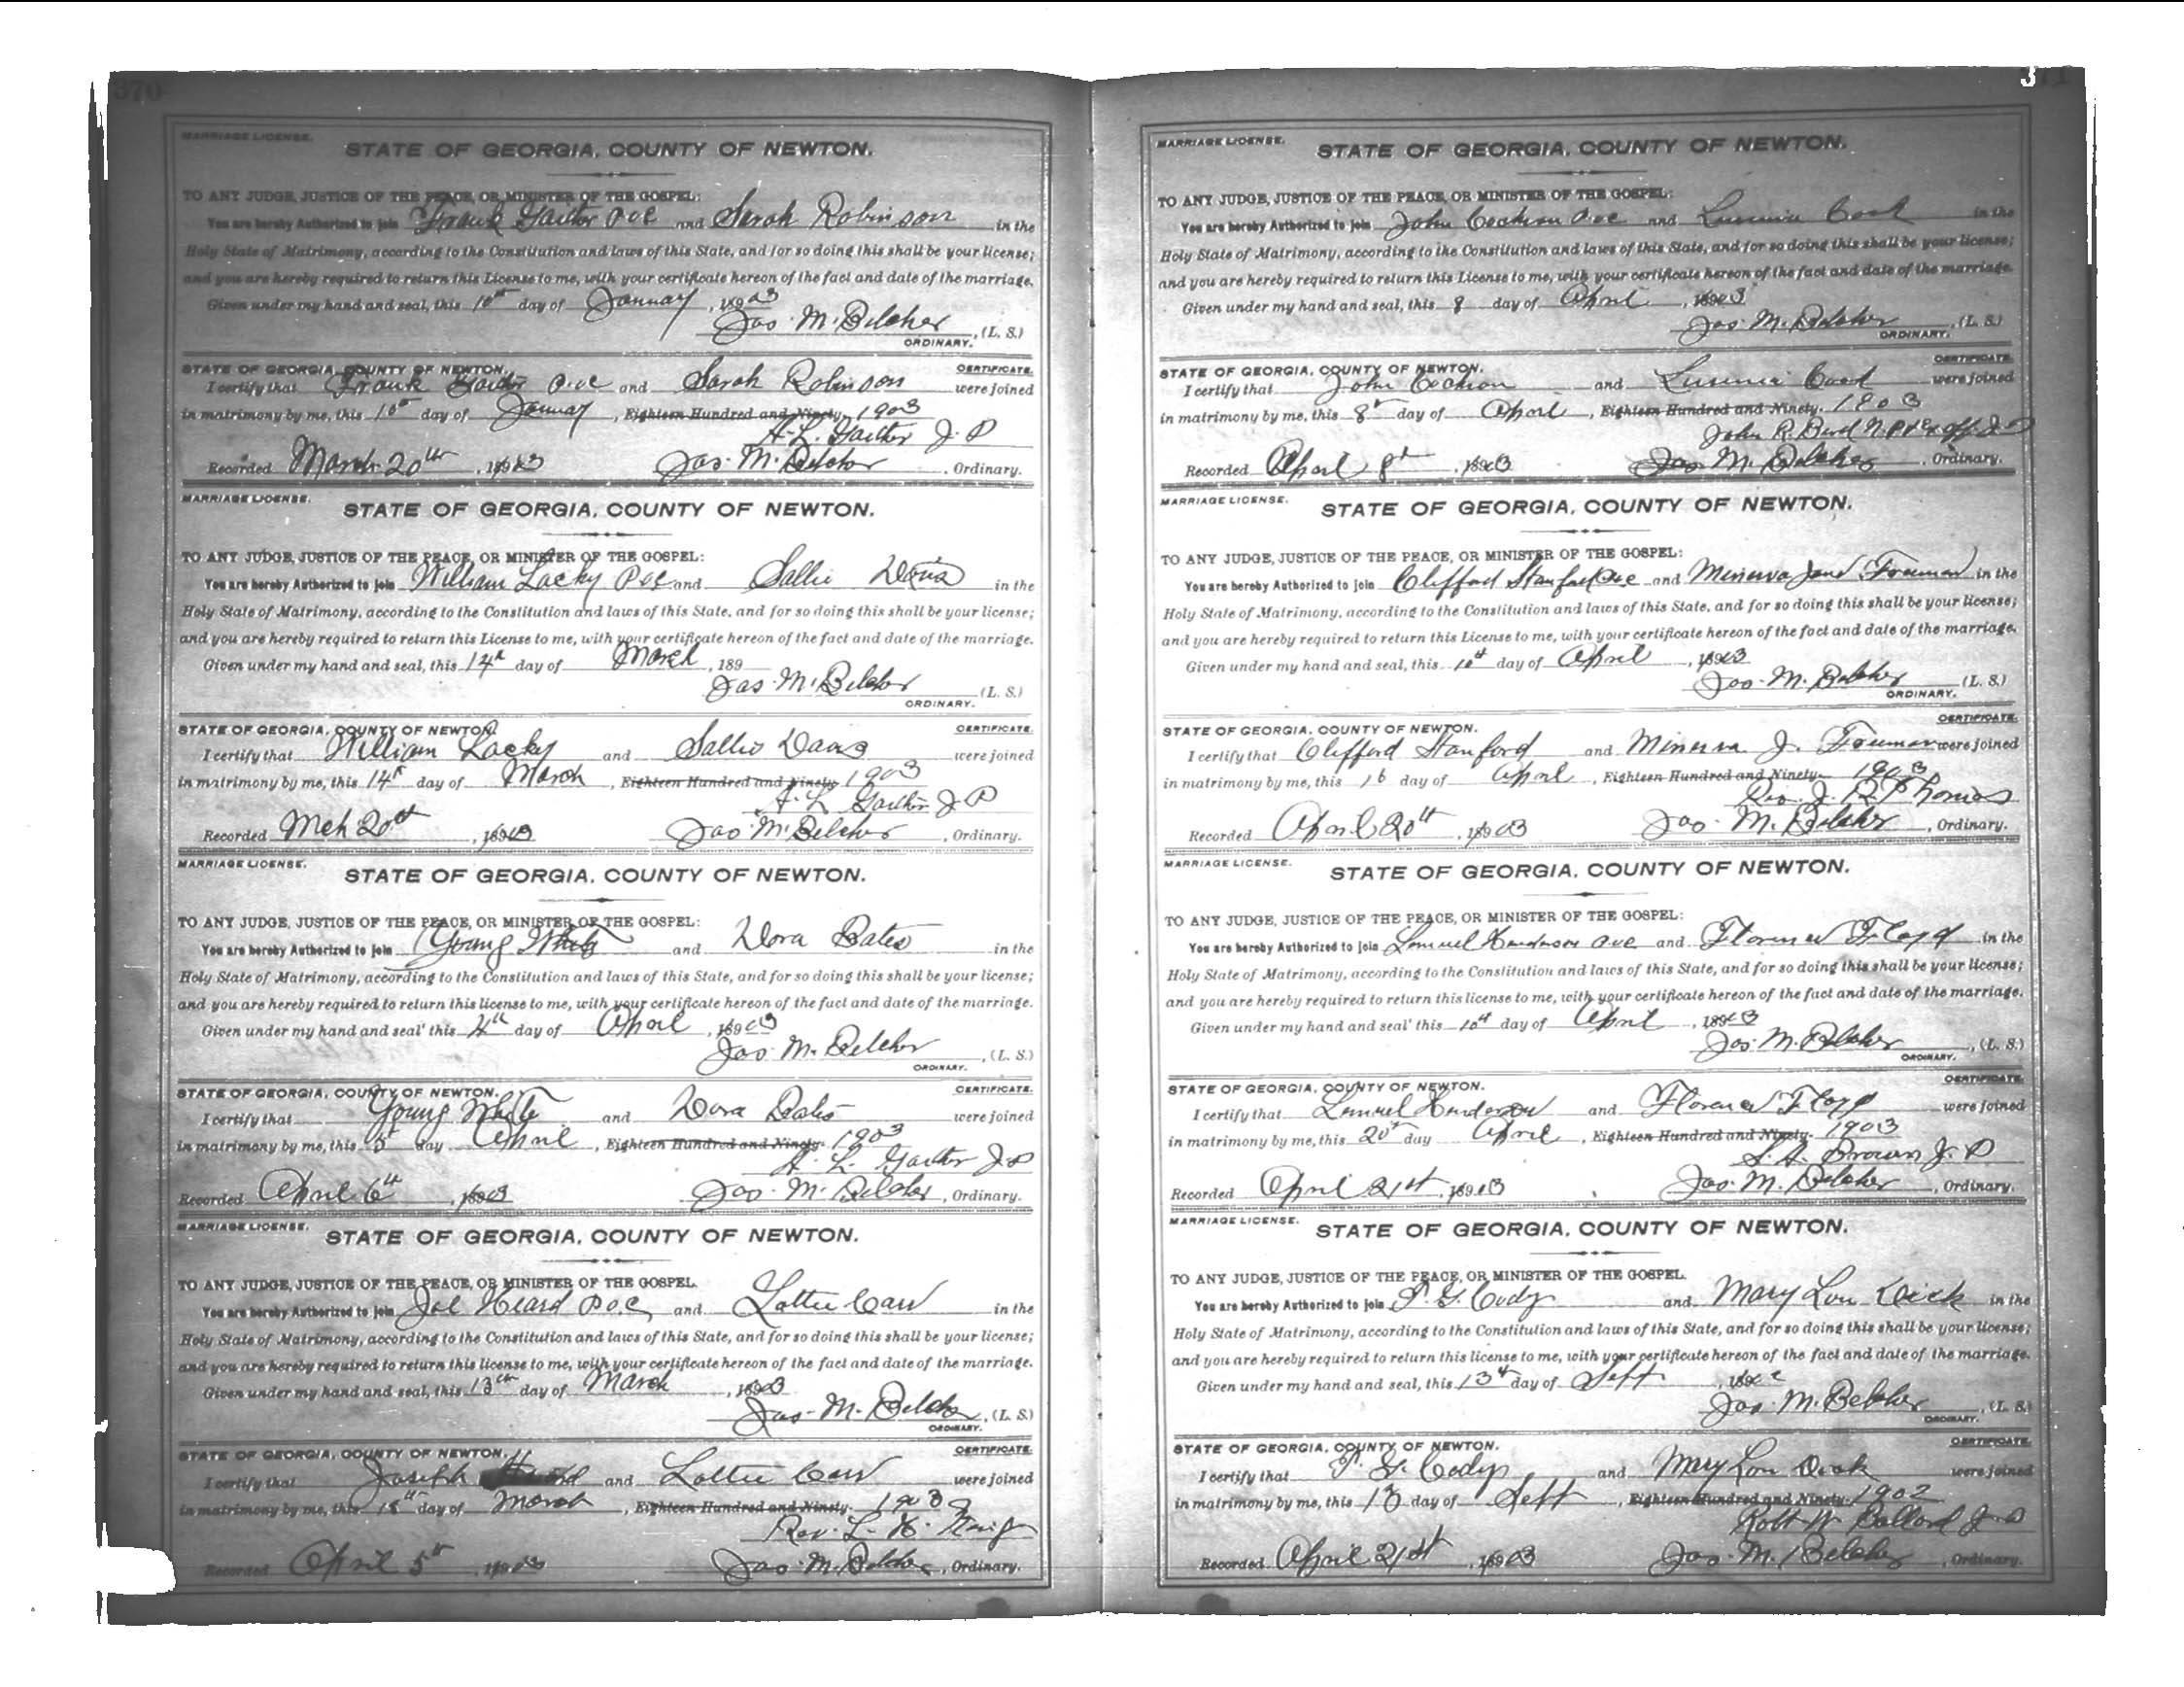 370
MARRIAGE LICENSE.
STATE OF GEORGIA, COUNTY OF NEWTON.
TO ANY JUDGE, JUSTICE OF THE PEACE, OR MINISTER OF THE GOSPEL:
You are hereby Authorized to join Frank Gaither P.O.C and Sarah Robinson in the
Holy State of Matrimony, according to the Constitution and laws of this State, and for so doing this shall be your license;
and you are hereby required to return this License to me, with your certificate hereon of the fact and date of the marriage.
Given under my hand and seal, this 10th day of January, 1903
Jas. M. Belcher, (L. S.)
ORDINARY.
STATE OF GEORGIA, COUNTY OF NEWTON. CERTIFICATE.
I certify that Frank Gaither P.O.C and Sarah Robinson were joined
in matrimony by me, this 10th day of January, Eighteen Hundred and Ninety- 1903
A. L. Gaither J. P
Recorded March 20th, 1903 Jas. M. Belcher, Ordinary.
MARRIAGE LICENSE.
STATE OF GEORGIA, COUNTY OF NEWTON.
TO ANY JUDGE, JUSTICE OF THE PEACE, OR MINISTER OF THE GOSPEL:
You are hereby Authorized to join William Lacky P.O.C and Sallie Davis in the
Holy State of Matrimony, according to the Constitution and laws of this State, and for so doing this shall be your license;
and you are hereby required to return this License to me, with your certificate hereon of the fact and date of the marriage.
Given under my hand and seal, this 14th day of March, 189
Jas. M. Belcher (L. S.)
ORDINARY.
STATE OF GEORGIA, COUNTY OF NEWTON. CERTIFICATE.
I certify that William Lacky and Sallie Davis were joined
in matrimony by me, this 14th day of March, Eighteen Hundred and Ninety- 1903
A. L. Gaither J P
Recorded Mch 20th, 1903 Jas. M. Belcher, Ordinary.
MARRIAGE LICENSE.
STATE OF GEORGIA, COUNTY OF NEWTON.
TO ANY JUDGE, JUSTICE OF THE PEACE, OR MINISTER OF THE GOSPEL:
You are hereby Authorized to join Young White and Dora Bates in the
Holy State of Matrimony, according to the Constitution and laws of this State, and for so doing this shall be your license;
and you are hereby required to return this license to me, with your certificate hereon of the fact and date of the marriage.
Given under my hand and seal this 4th day of April, 1903
Jas. M. Belcher, (L. S.)
ORDINARY.
STATE OF GEORGIA, COUNTY OF NEWTON. CERTIFICATE.
I certify that Young White and Dora Bates were joined
in matrimony by me, this 5th day April, Eighteen Hundred and Ninety- 1903
A. L. Gaither J. P
Recorded April 6th, 1903 Jas. M. Belcher, Ordinary.
MARRIAGE LICENSE.
STATE OF GEORGIA, COUNTY OF NEWTON.
TO ANY JUDGE, JUSTICE OF THE PEACE, OR MINISTER OF THE GOSPEL.
You are hereby Authorized to join Joe Heard P.O.C and Lottie Carr in the
Holy State of Matrimony, according to the Constitution and laws of this State, and for so doing this shall be your license;
and you are hereby required to return this license to me, with your certificate hereon of the fact and date of the marriage.
Given under my hand and seal, this 13th day of March, 1903
Jas. M. Belcher, (L. S.)
ORDINARY.
STATE OF GEORGIA, COUNTY OF NEWTON. CERTIFICATE.
I certify that Joseph and Lottie Carr were joined
in matrimony by me, this 15th day of March, Eighteen Hundred and Ninety- 1903
Rev. L. H.
Recorded April 5th, 1903 Jas. M. Belcher, Ordinary.
371
MARRIAGE LICENSE.
STATE OF GEORGIA, COUNTY OF NEWTON.
TO ANY JUDGE, JUSTICE OF THE PEACE, OR MINISTER OF THE GOSPEL:
You are hereby Authorized to join John Cochran P.O.C and Cook in the
Holy State of Matrimony, according to the Constitution and laws of this State, and for so doing this shall be your license;
and you are hereby required to return this License to me, with your certificate hereon of the fact and date of the marriage.
Given under my hand and seal, this 8 day of April, 1903
Jas. M. Belcher, (L. S.)
ORDINARY.
STATE OF GEORGIA, COUNTY OF NEWTON. CERTIFICATE.
I certify that John Cochran and Cook were joined
in matrimony by me, this 8th day of April, Eighteen Hundred and Ninety- 1903
John R. N P & Ex off J P
Recorded April 8th, 1903 Jas. M. Belcher, Ordinary.
MARRIAGE LICENSE.
STATE OF GEORGIA, COUNTY OF NEWTON.
TO ANY JUDGE, JUSTICE OF THE PEACE, OR MINISTER OF THE GOSPEL:
You are hereby Authorized to join Clifford Stanford P.O.C and Minerva Jane Freeman in the
Holy State of Matrimony, according to the Constitution and laws of this State, and for so doing this shall be your license;
and you are hereby required to return this License to me, with your certificate hereon of the fact and date of the marriage.
Given under my hand and seal, this 10th day of April, 1903
Jas. M. Belcher (L. S.)
ORDINARY.
STATE OF GEORGIA, COUNTY OF NEWTON. CERTIFICATE.
I certify that Clifford Stanford and Minerva J. Freeman were joined
in matrimony by me, this 16 day of April, Eighteen Hundred and Ninety- 1903
Rev. J. R. Thomas
Recorded April 20th, 1903 Jas. M. Belcher, Ordinary.
MARRIAGE LICENSE.
STATE OF GEORGIA, COUNTY OF NEWTON.
TO ANY JUDGE, JUSTICE OF THE PEACE, OR MINISTER OF THE GOSPEL:
You are hereby Authorized to join Lemuel Henderson P.O.C and Florence Floyd in the
Holy State of Matrimony, according to the Constitution and laws of this State, and for so doing this shall be your license;
and you are hereby required to return this license to me, with your certificate hereon of the fact and date of the marriage.
Given under my hand and seal this 10th day of April, 1903
Jas. M. Belcher, (L. S.)
ORDINARY.
STATE OF GEORGIA, COUNTY OF NEWTON. CERTIFICATE.
I certify that Lemuel Henderson and Florence Floyd were joined
in matrimony by me, this 20th day April, Eighteen Hundred and Ninety- 1903
S. A. Brown J. P
Recorded April 21st, 1903 Jas. M. Belcher, Ordinary.
MARRIAGE LICENSE.
STATE OF GEORGIA, COUNTY OF NEWTON.
TO ANY JUDGE, JUSTICE OF THE PEACE, OR MINISTER OF THE GOSPEL.
You are hereby Authorized to join G. Cody and Mary Lou Dick in the
Holy State of Matrimony, according to the Constitution and laws of this State, and for so doing this shall be your license;
and you are hereby required to return this license to me, with your certificate hereon of the fact and date of the marriage.
Given under my hand and seal, this 13th day of Sept, 1902
Jas. M. Belcher, (L. S.)
ORDINARY.
STATE OF GEORGIA, COUNTY OF NEWTON. CERTIFICATE.
I certify that G. Cody and Mary Lou Dick were joined
in matrimony by me, this 13 day of Sept, Eighteen Hundred and Ninety- 1902
Robt W Ballard J. P
Recorded April 21st, 1903 Jas. M. Belcher, Ordinary.